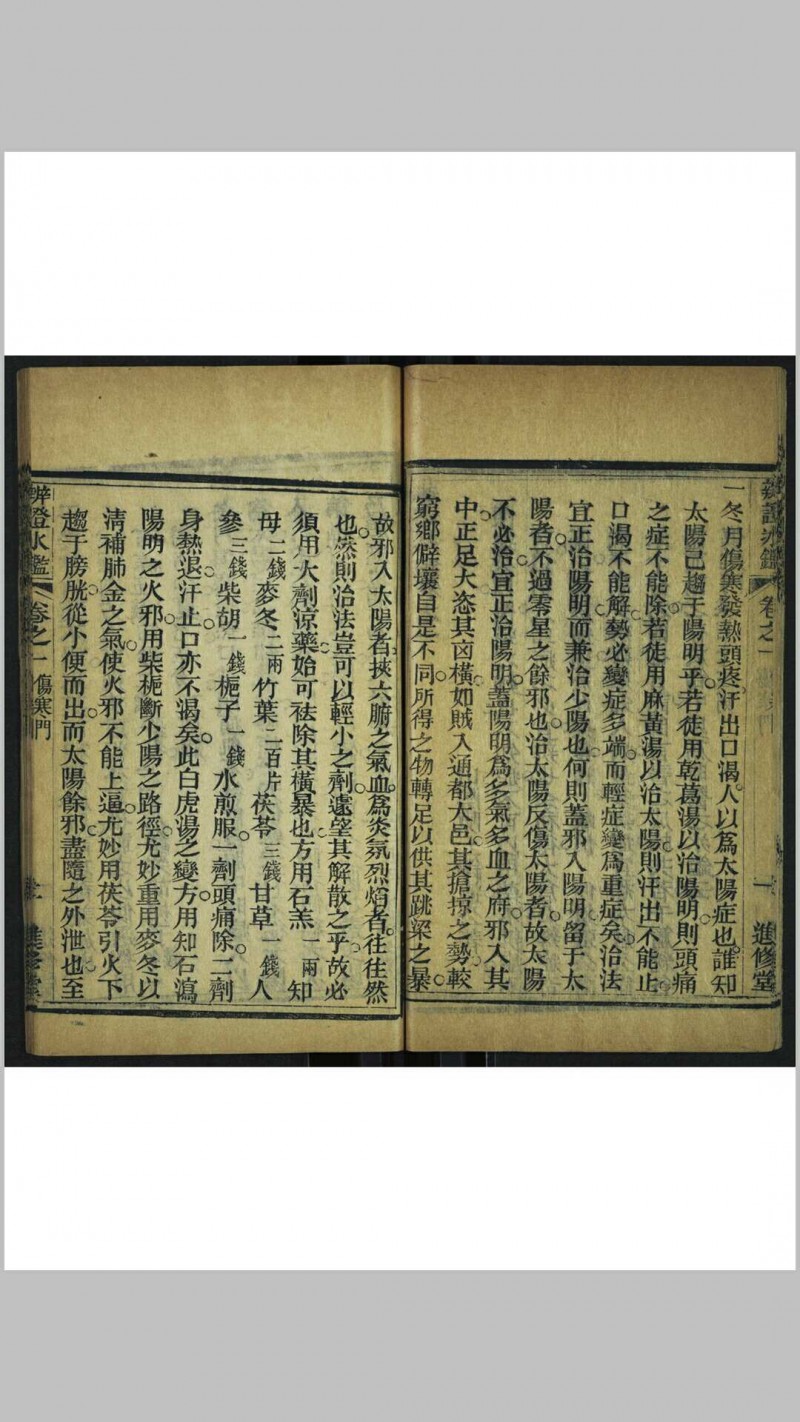 卷之一
一
進修堂
一冬月傷寒發熱頭疼汗出口渴人以爲太陽症也誰知
太陽已趨于陽明乎若徒用乾葛湯以治陽明則頭痛
之症不能除若徒用麻黃湯以治太陽則汗出不能止
口渴不能解勢必變症多端而輕症變爲重症矣治法
宜正治陽明而兼治少陽也何則蓋邪入陽明留于太
陽者不過零星之餘邪也治太陽反傷太陽者故太陽
不必治宜正治陽明蓋陽明爲多氣多血之府邪入其
中正足大恣其凶橫如賊入通都大邑其搶掠之勢較
窮鄉僻壤自是不同所得之物轉足以供其跳梁之暴
故邪入太陽者挾六腑之氣血爲炎氛烈焰者往往然
也然則治法豈可以輕小之劑遠望其解散之乎故必
須用大劑涼藥始可祛除其橫暴也方用石羔一兩知
母二錢麥冬二兩竹葉二百片茯苓三錢甘草一錢人
參三錢柴胡一錢梔子一錢水煎服一劑頭痛除二劑
身熱退汗止口亦不渴矣此白虎湯之變方用知石瀉
陽明之火邪用柴梔斷少陽之路徑尤妙重用麥冬以
清補肺金之氣使火邪不能上逼尤妙用茯苓引火下
趨于膀胱從小便而出而太陽餘邪盡隨之外泄也至
辨證冰鑑 卷之一 傷寒門